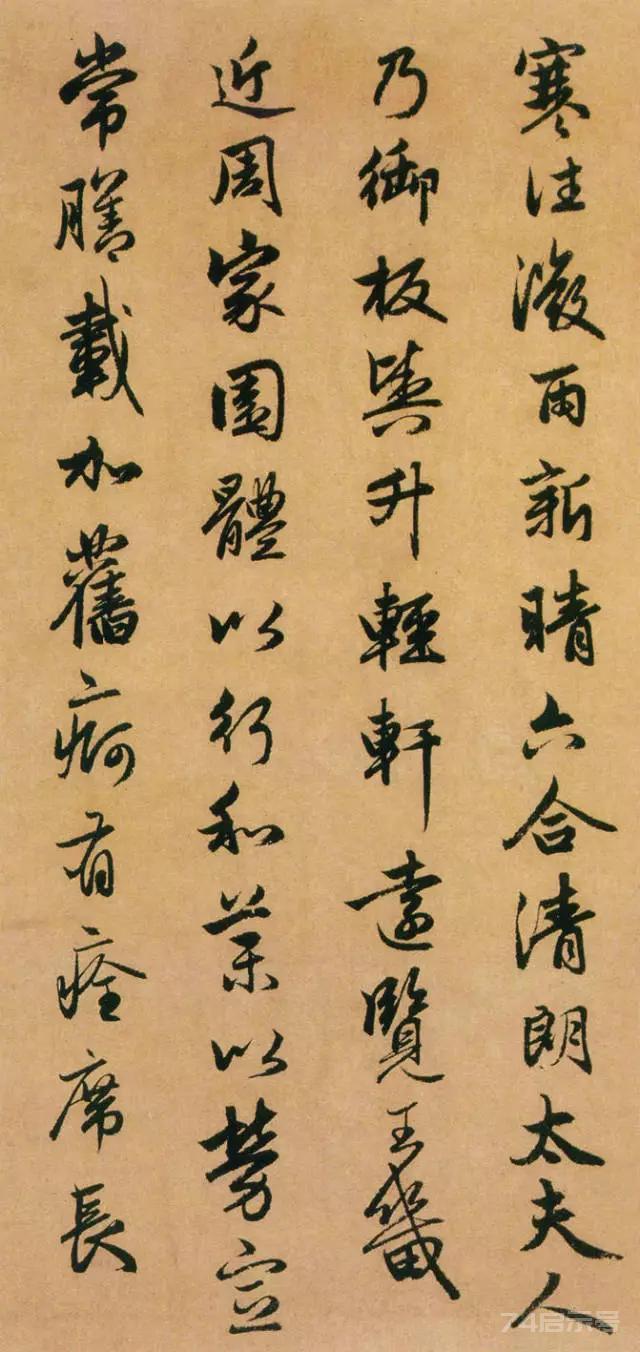 寒往微雨新晴六合清朗太夫人
乃御板輿升輕軒遠覽王畿
近周家園體以行和藥以勞宣
常膳載加舊痾有痊席長
74启示号